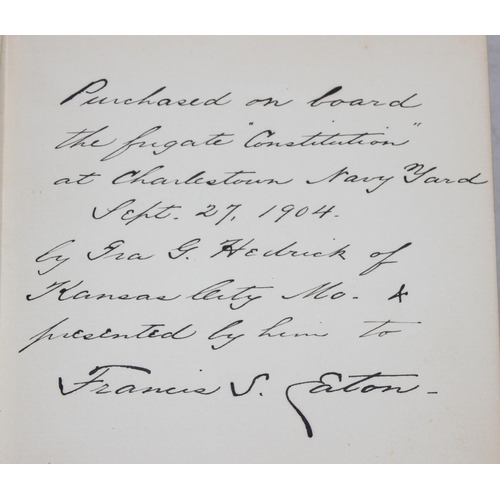 Purchased on board
the frigate "Constitution"
at Charlestown Navy Yard
Sept. 27, 1904.
by Ira G. Hedrick of
Kansas City Mo. &
presented by him to
Francis S. Eaton-